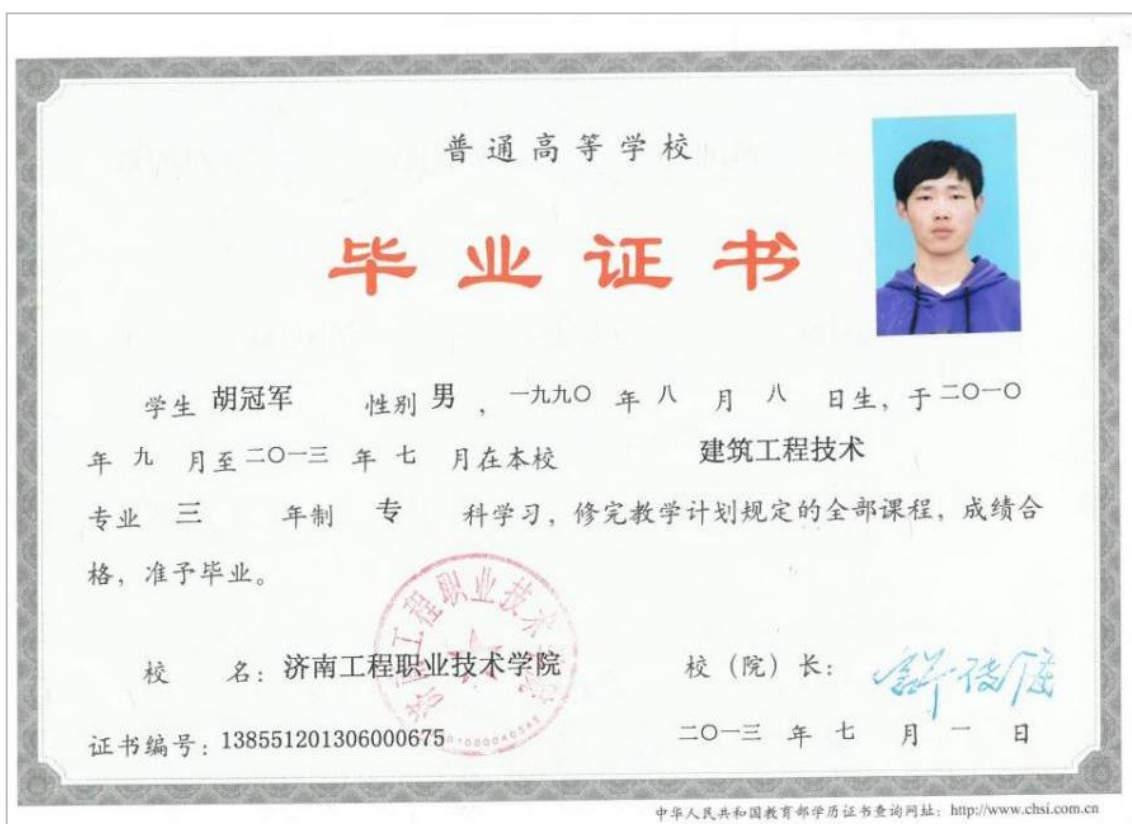 普通高等学校
毕业证书
学生 胡冠军 性别 男 , 一九九〇 年 八 月 八 日生, 于 二〇一〇
年 九 月至 二〇一三 年 七 月在本校 建筑工程技术
专业 三 年制 专 科学习, 修完教学计划规定的全部课程, 成绩合
格, 准予毕业。
校 名: 济南工程职业技术学院
校 (院) 长:
证书编号: 138551201306000675
二〇一三 年 七 月 一 日
中华人民共和国教育部学历证书查询网址: http://www.chsi.com.cn